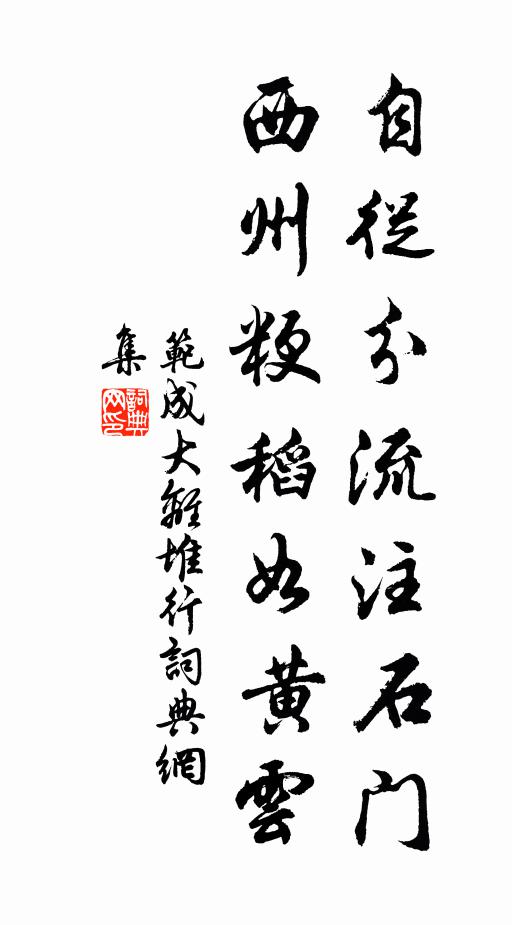 自從分流注石门
西州粳稻如黄雲
範成大離堆行詞典網
集
詞典
网印